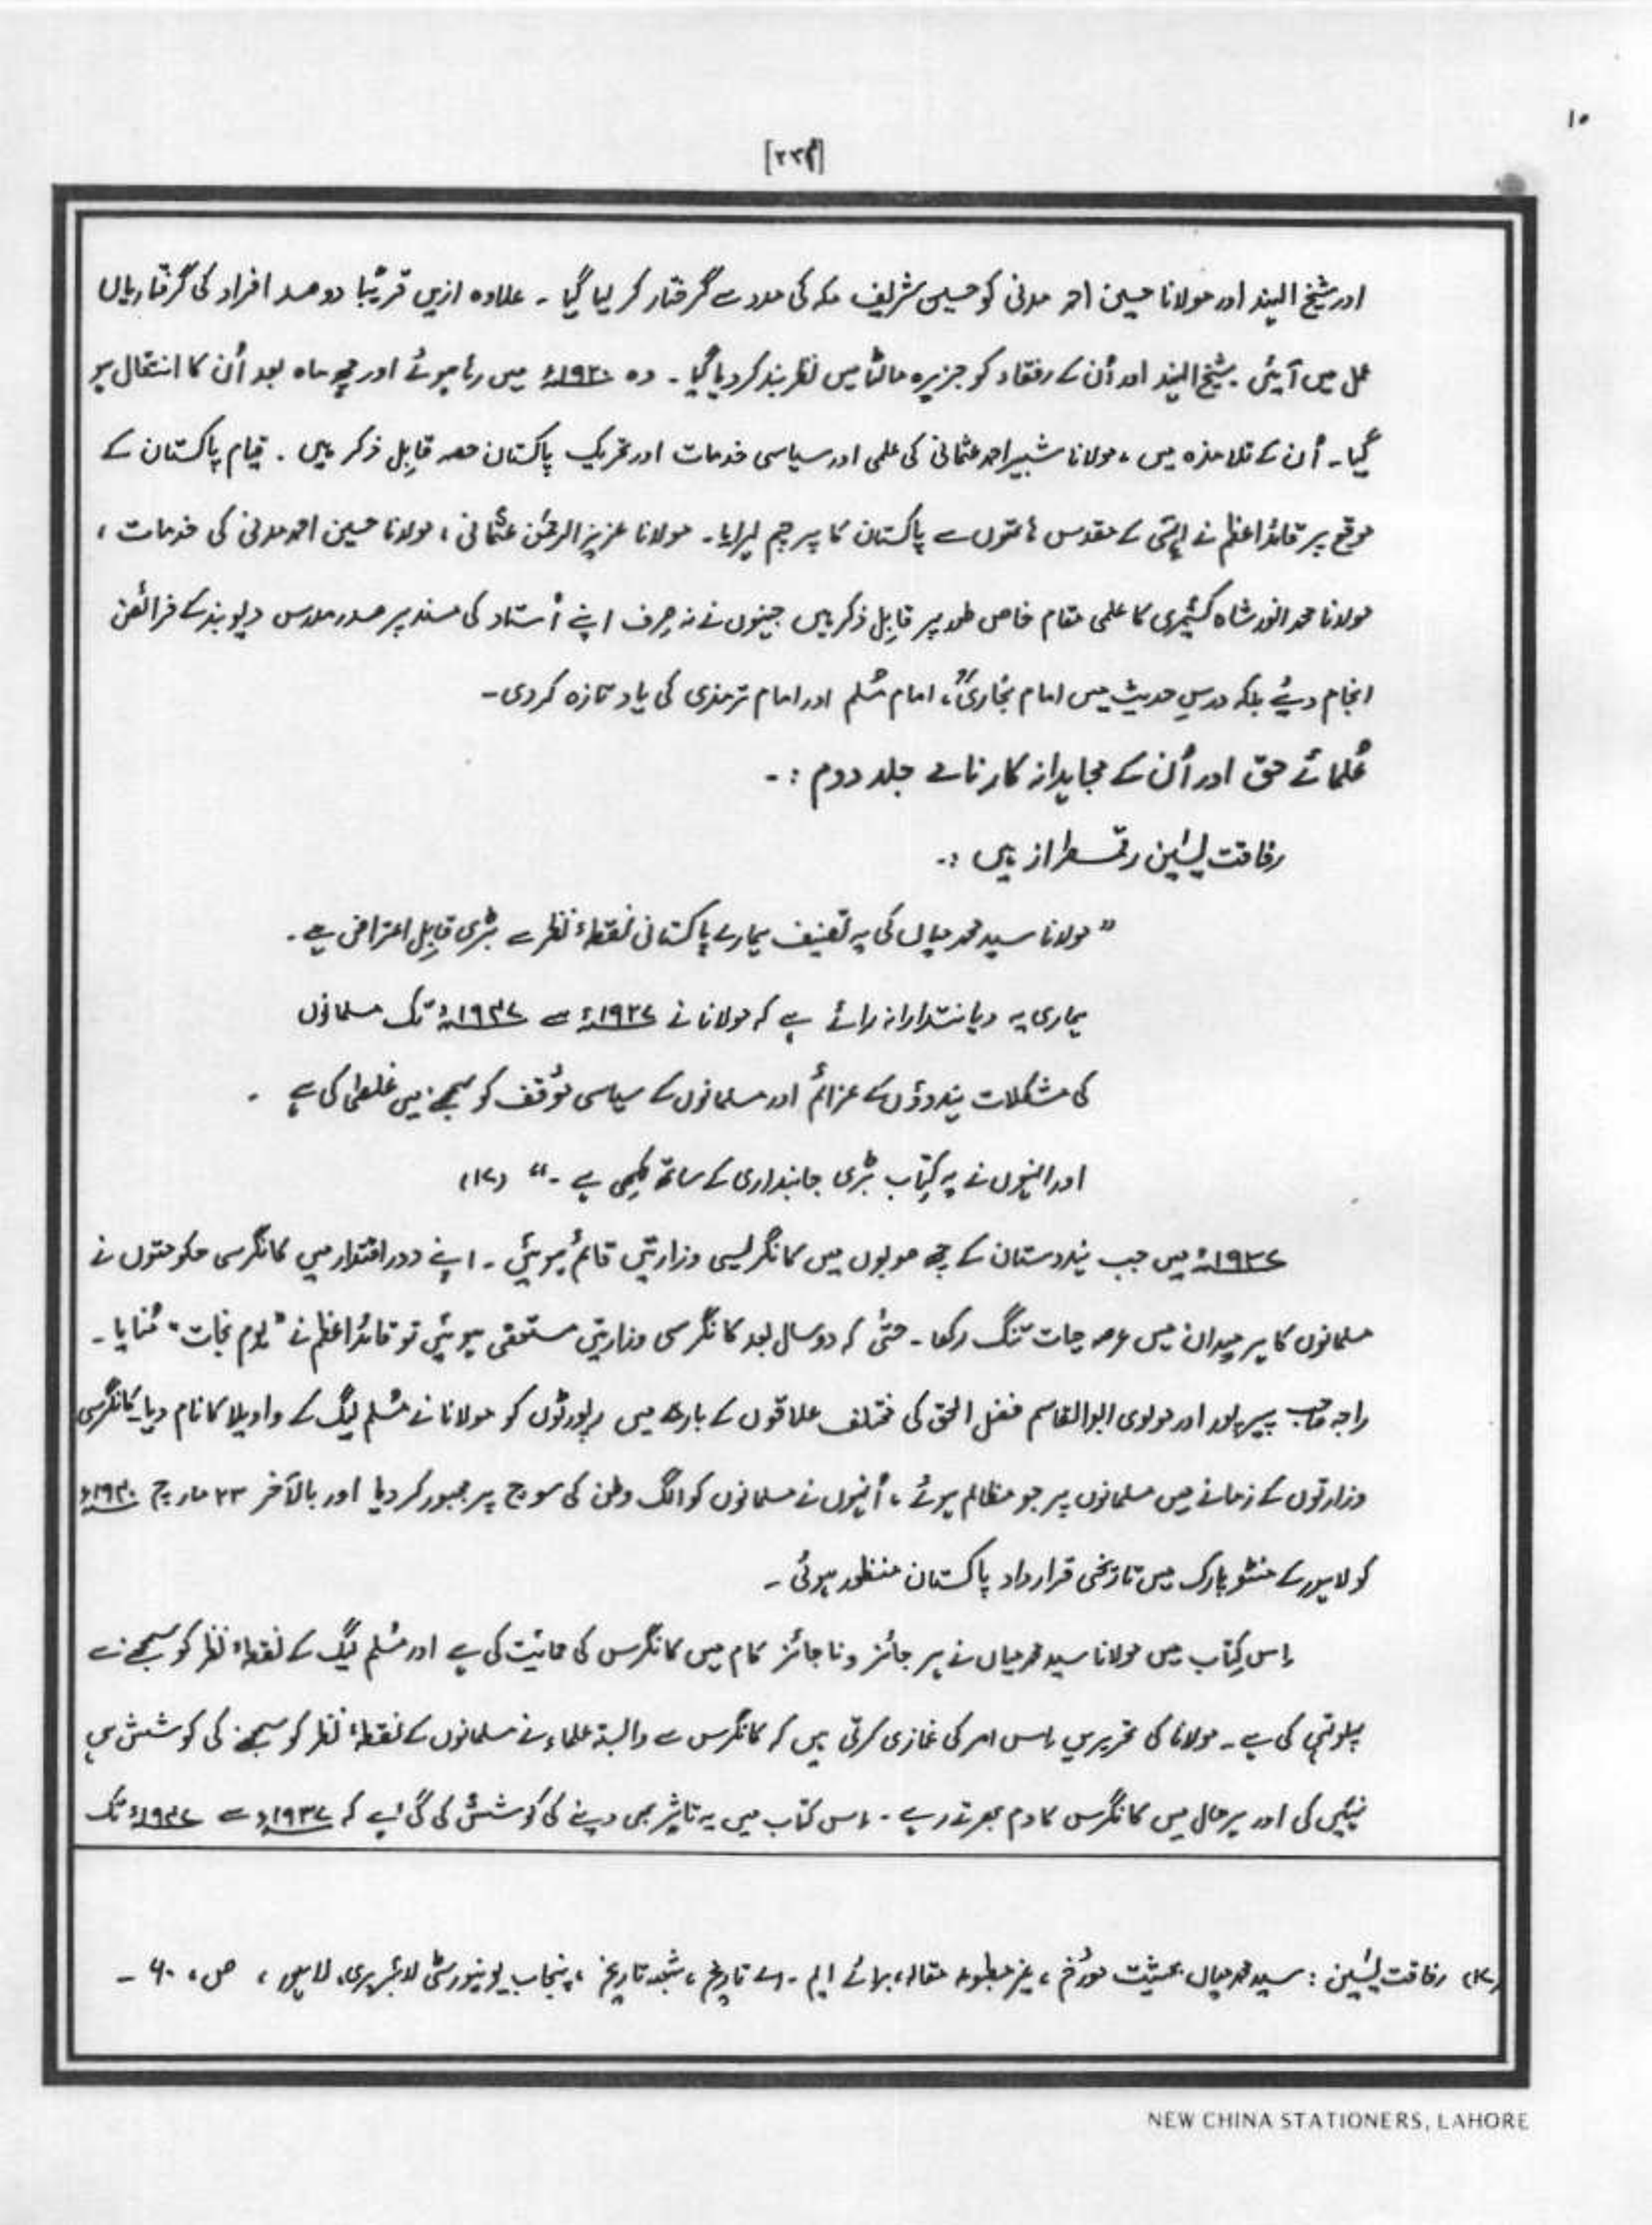 ۱۰
[۲۳۴]
اور شیخ الہند اور مولانا حسین احمد مدنی کو حسین شریف مکہ کی مدد سے گرفتار کر لیا گیا ۔ علاوہ ازیں قریبًا دو صد افراد کی گرفتاریاں
عمل میں آئیں ۔ شیخ الہند اور اُن کے رفقاء کو جزیرہ مالٹا میں نظر بند کر دیا گیا ۔ وہ ۱۹۲۰ء میں رہا ہوئے اور چھ ماہ بعد اُن کا انتقال ہو
گیا ۔ اُن کے تلامذہ میں ، مولانا شبیر احمد عثمانی کی علمی اور سیاسی خدمات اور تحریک پاکستان حصہ قابِل ذکر ہیں ۔ قیام پاکستان کے
موقع پر قائد اعظم نے اِنہی کے مقدس ہاتھوں سے پاکستان کا پرچم لہرایا ۔ مولانا عزیز الرحمٰن عثمانی ، مولانا حسین احمد مدنی کی خدمات ،
مولانا محمد انور شاہ کشمیری کا علمی مقام خاص طور پر قابِل ذکر ہیں جنہوں نے نہ صِرف اپنے اُستاد کی مسند پر صدر مدرس دیوبند کے فرائض
انجام دیئے بلکہ درسِ حدیث میں امام بخاریؒ ، امام مُسلم اور امام ترمذی کی یاد تازہ کر دی ۔
عُلمائے حق اور اُن کے مجاہدانہ کارنامے جلد دوم : ۔
رفاقت یٰسین رقمطراز ہیں : ۔
" مولانا سید محمد میاں کی یہ تصنیف ہمارے پاکستانی نقطۂ نظر سے بڑی قابِل اعتراض ہے ۔
ہماری یہ دیانتدارانہ رائے ہے کہ مولانا نے ۱۹۳۷ء سے ۱۹۴۷ء تک مسلمانوں
کی مشکلات ہندوؤں کے عزائم اور مسلمانوں کے سیاسی مؤقف کو سمجھنے میں غلطی کی ہے ۔
اور انہوں نے یہ کِتاب بڑی جانبداری کے ساتھ لِکھی ہے ۔ " (۱۷)
۱۹۳۷ء میں جب ہندوستان کے چھ صوبوں میں کانگرلیسی وزارتیں قائم ہوئیں ۔ اپنے دور اقتدار میں کانگرسی حکومتوں نے
مسلمانوں کا ہر میدان میں عرصہ حیات تنگ رکھا ۔ حتیٰ کہ دو سال بعد کانگرسی وزارتیں مستعفی ہوئیں تو قائد اعظم نے " یوم نجات " مُنایا ۔
راجہ صاحب پیرپور اور مولوی ابوالقاسم فضل الحق کی مختلف علاقوں کے بارے میں رپورٹوں کو مولانا نے مُسلم لیگ کے واویلا کا نام دیا ۔ کانگرسی
وزارتوں کے زمانے میں مسلمانوں پر جو مظالم ہوئے ، اُنہوں نے مسلمانوں کو الگ وطن کی سوچ پر مجبور کر دیا اور بالآخر ۲۳ مارچ ۱۹۴۰ء
کو لاہور کے منٹو پارک میں تاریخی قرارداد پاکستان منظور ہوئی ۔
اِس کِتاب میں مولانا سید محمد میاں نے ہر جائز و ناجائز کام میں کانگرس کی حمائیت کی ہے اور مُسلم لیگ کے نقطۂ نظر کو سمجھنے سے
پہلوتہی کی ہے ۔ مولانا کی تحریریں اِس امر کی غمازی کرتی ہیں کہ کانگرس سے وابستہ علماء نے مسلمانوں کے نقطۂ نظر کو سمجھنے کی کوشش ہی
نہیں کی اور ہر حال میں کانگرس کا دم بھرتے رہے ۔ اِس کتاب میں یہ تاثر بھی دینے کی کوشش کی گئی ہے کہ ۱۹۳۷ء سے ۱۹۴۷ء تک
(۱۷) رفاقت یٰسین : سید محمد میاں بحیثیت مؤرخ ، غیر مطبوعہ مقالہ ، برائے ایم ۔ اے تاریخ ، شعبہ تاریخ ، پنجاب یونیورسٹی لائبریری ، لاہور ، ص ، ۶۰ ۔
NEW CHINA STATIONERS, LAHORE